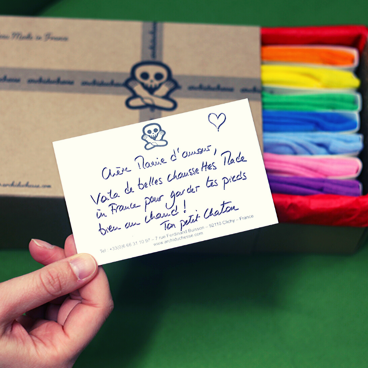 Made in France
archiduchesse
Chère Mamie d'amour,
Voila de belles chaussettes Made
in France pour garder tes pieds
bien au chaud !
Ton petit Chaton
7 rue Ferdinand Buisson - 92110 Clichy - France
www.archiduchesse.com